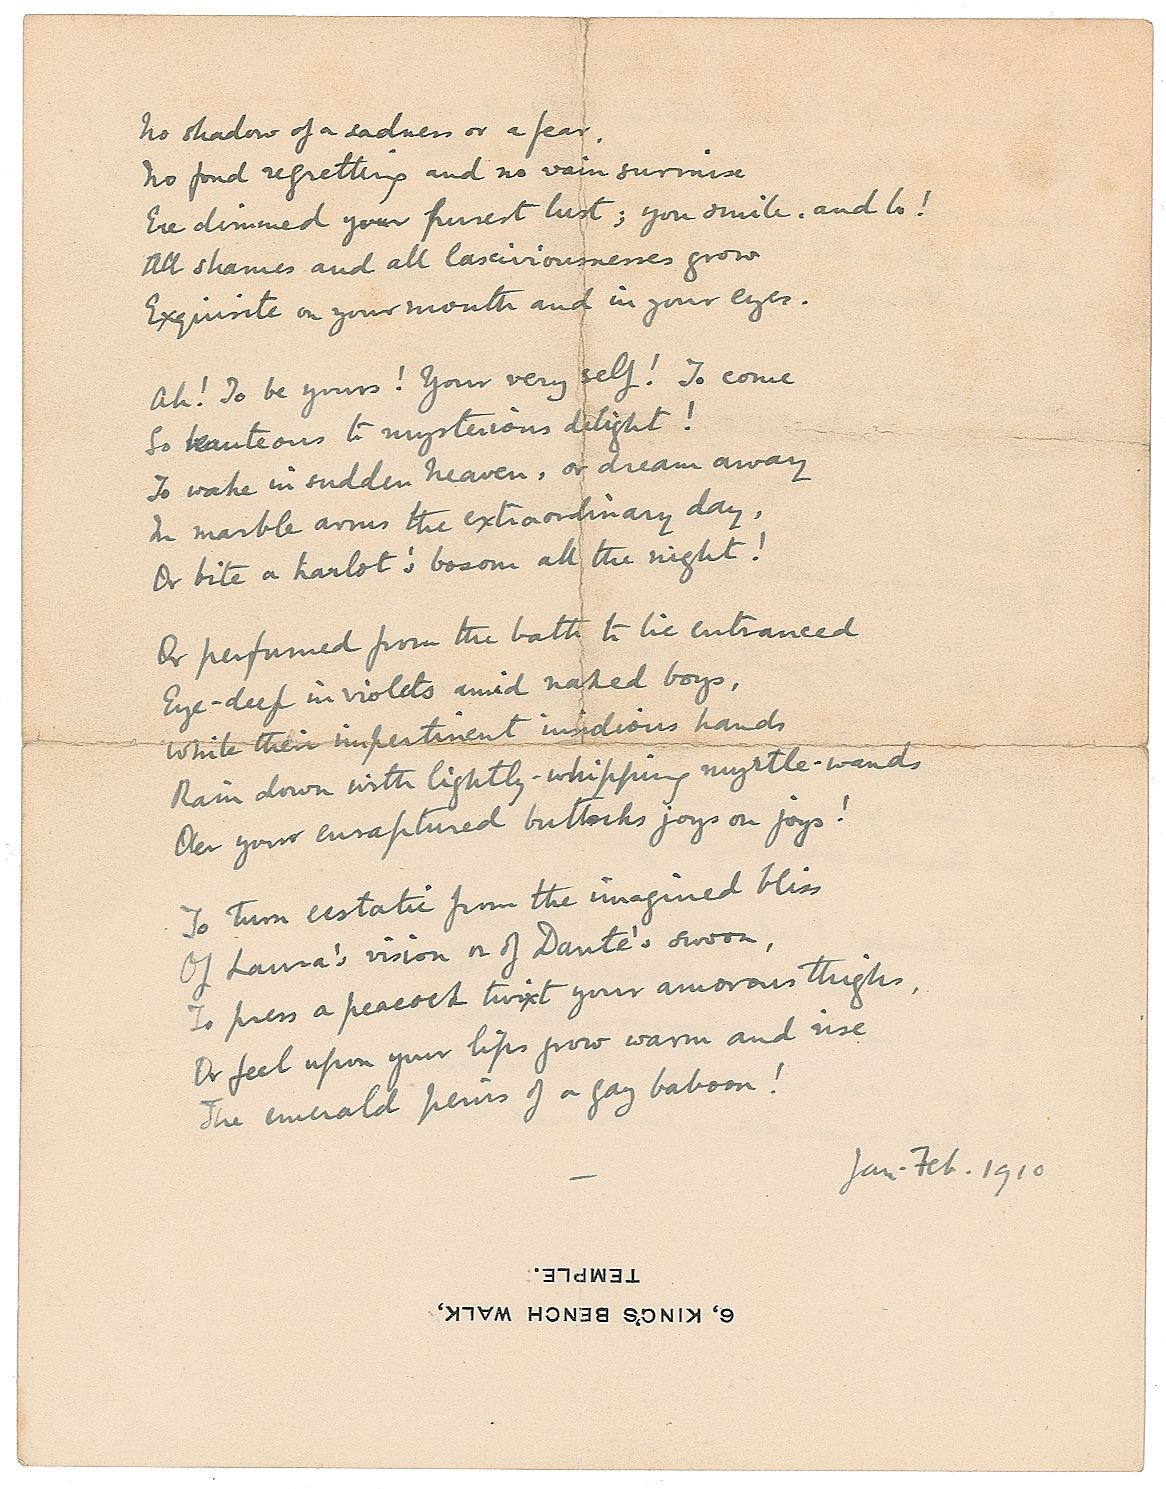 No shadow of a sadness or a fear,
No fond regretting and no vain surmise
Ere dimmed your purest lust; you smile, and lo!
All shames and all lasciviousnesses grow
Exquisite on your mouth and in your eyes.
Ah! To be yours! Your very self! To come
So beauteous to mysterious delight!
To wake in sudden heaven, or dream away
In marble arms the extraordinary day,
Or bite a harlot's bosom all the night!
Or perfumed from the bath to lie entranced
Eye-deep in violets amid naked boys,
While their impertinent insidious hands
Rain down with lightly-whipping myrtle-wands
O'er your enraptured buttocks joys on joys!
To turn ecstatic from the imagined bliss
Of Laura's vision or of Dante's swoon,
To press a peacock twixt your amorous thighs,
Or feel upon your lips grow warm and rise
The emerald penis of a gay baboon!
Jan-Feb. 1910
6, KING'S BENCH WALK,
TEMPLE.